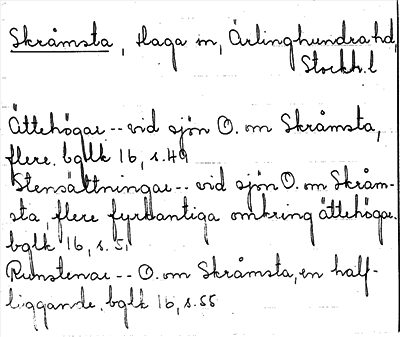 Skråmsta, Haga sn, Ärlinghundra hd,
Stockh. l
Ättehögar -- vid sjön O. om Skråmsta,
flere. bglk 16, s. 49
Stensättningar -- vid sjön O. om Skråm-
sta, flere fyrkantiga omkring ättehögar.
bglk 16, s. 51
Runstenar -- O. om Skråmsta, en half-
liggande. bglk 16, s. 55